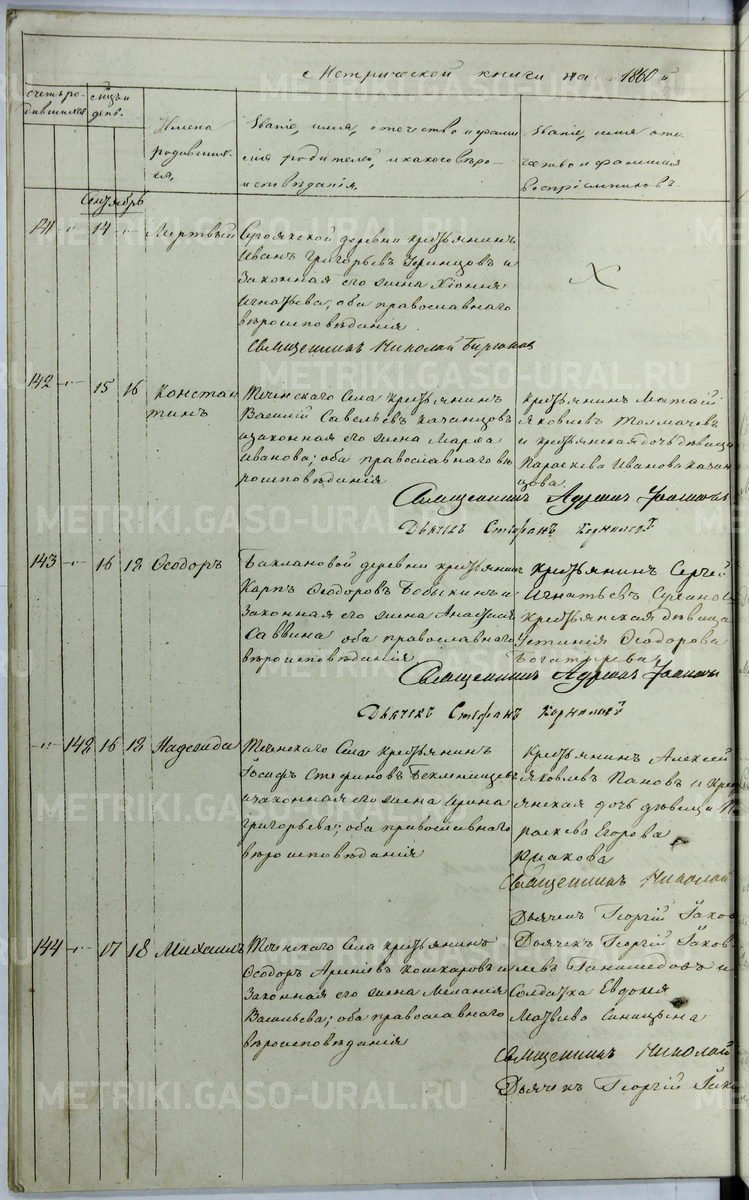 Метрической книги на 1860й
счетъ ро-
дившихся
мѣсяцъ и
день.
Имена
родивших-
ся,
Званіе, имя, отечество и фами-
лія родителей, и какого вѣро-
исповѣданія.
Званіе, имя оте-
чество и фамилія
воспріемниковъ.
Сентябрь
141 14 Мертвый
деревни крестьянинъ
Иванъ Григорьевъ и
законная его жена Хіонія
Игнатьева; оба православнаго
вѣроисповѣданія.
Священникъ Николай Бирюковъ
142 15 16 Констан
тинъ
Теченскаго Села крестьянинъ
Василій Савельевъ Качанцовъ
и законная его жена Марѳа
Иванова; оба православнаго вѣ
роисповѣданія
крестьянинъ Матѳій
Яковлевъ Толмачевъ
и крестьянская дочь дѣвица
Параскева Иванова Качан
цова.
Священникъ Адріанъ
Дьячекъ Стефанъ
143 16 18 Ѳеодоръ
Баклановой деревни крестьянинъ
Карпъ Ѳеодоровъ Бобыкинъ и
законная его жена Анастасія
Саввина оба православнаго
вѣроисповѣданія
крестьянинъ Сергей
Игнатьевъ
крестьянская дѣвица
Устинія Ѳеодорова
Богатырева
Священникъ Адріанъ
Дьячекъ Стефанъ
142 16 18 Надежда
Теченскаго Села крестьянинъ
Іосифъ Стефановъ Беклемищевъ
и законная его жена Ирина
Григорьева; оба православнаго
вѣроисповѣданія
крестьянинъ Алексей
Яковлевъ Пановъ и крес
янская дочь дѣвица П
раскева Егорова
Священникъ Николай
Дьячекъ Георгій Іаков
144 17 18 Михаилъ
Теченскаго Села крестьянинъ
Ѳеодоръ Арсеніевъ Кошкаровъ и
законная его жена Меланія
Васильева; оба православнаго
вѣроисповѣданія
Дьячекъ Георгій Іаков
левъ и
Солдатка Евдокія
Матвѣева Синицына
Священникъ Николай
Дьячекъ Георгій Іако
METRIKI.GASO-URAL.RU